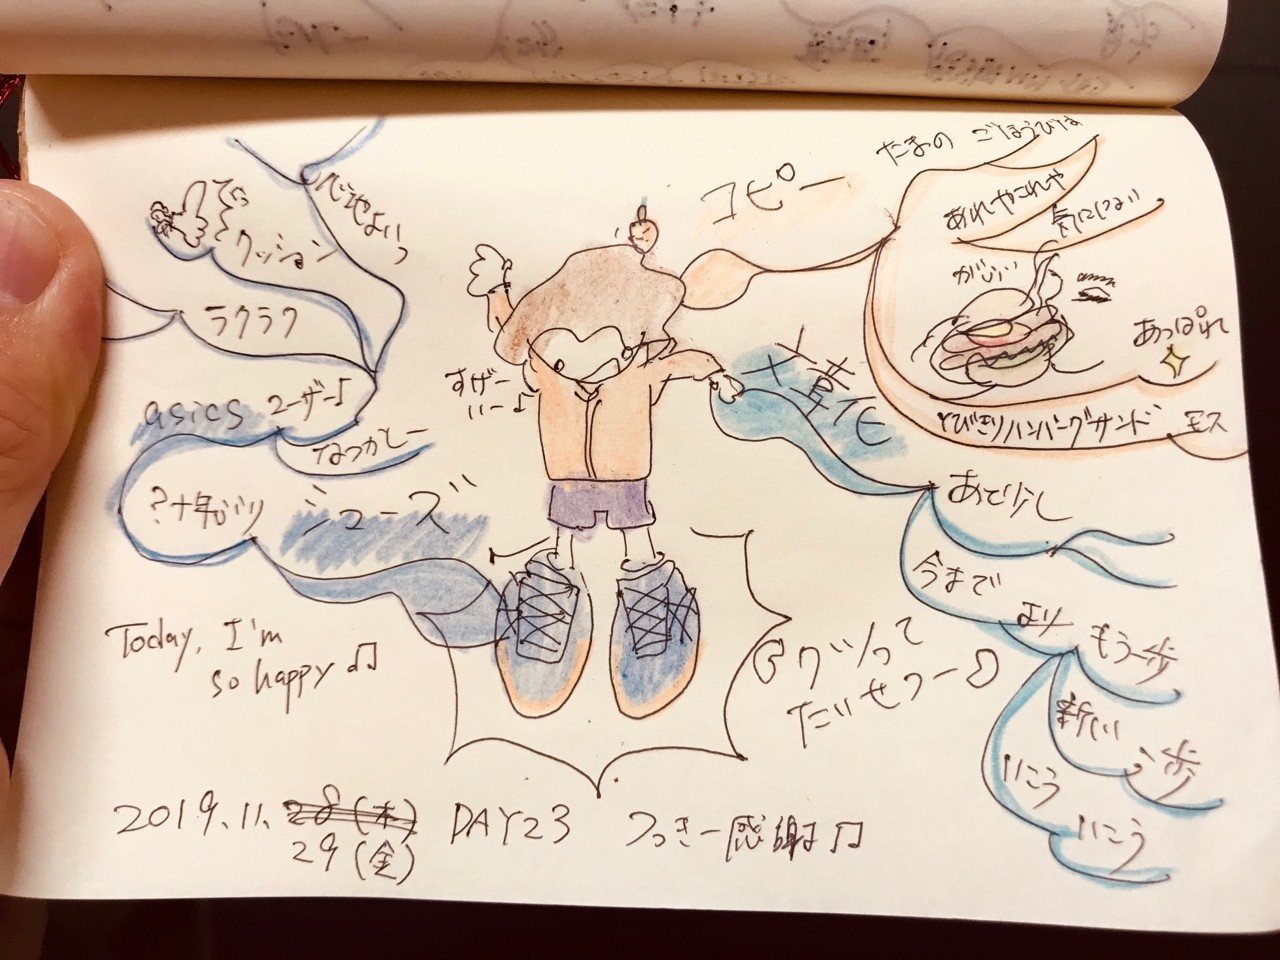 たまの ごほうびは
コピー
心地よいっ
クッション
あれやこれや
気にしない
ラクラク
がぶぅ
あっぱれ
文章化
すげー
いー♪
asics ユーザー♪
とびきりハンバーグサンド モス
なつかしー
？十年ぶり
シューズ
あと少し
今まで
より
もう一歩
Today, I'm
so happy ♫
クツって
だいせつー♪
新しい
一歩
いこう
いこう
2019.11.28(木) DAY23 つっきー感謝♫
29(金)